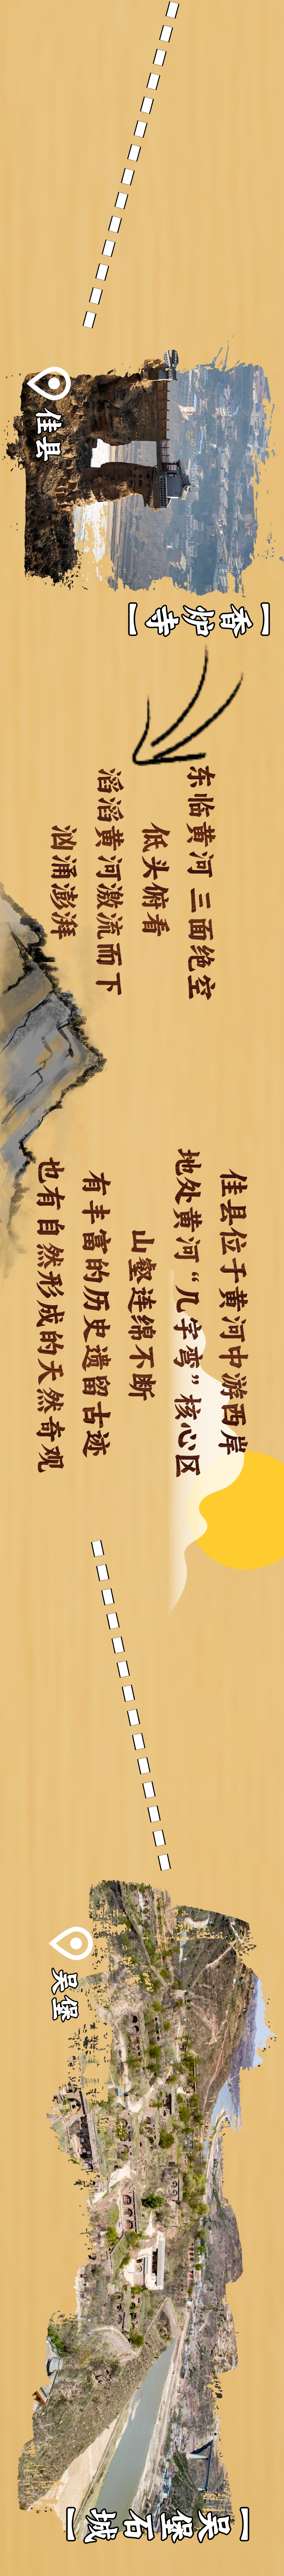 佳县
【香炉寺】
东临黄河 三面绝空
低头俯看
滔滔黄河激流而下
汹涌澎湃
佳县位于黄河中游西岸
地处黄河“几字弯”核心区
山壑连绵不断
有丰富的历史遗留古迹
也有自然形成的天然奇观
吴堡
【吴堡石城】